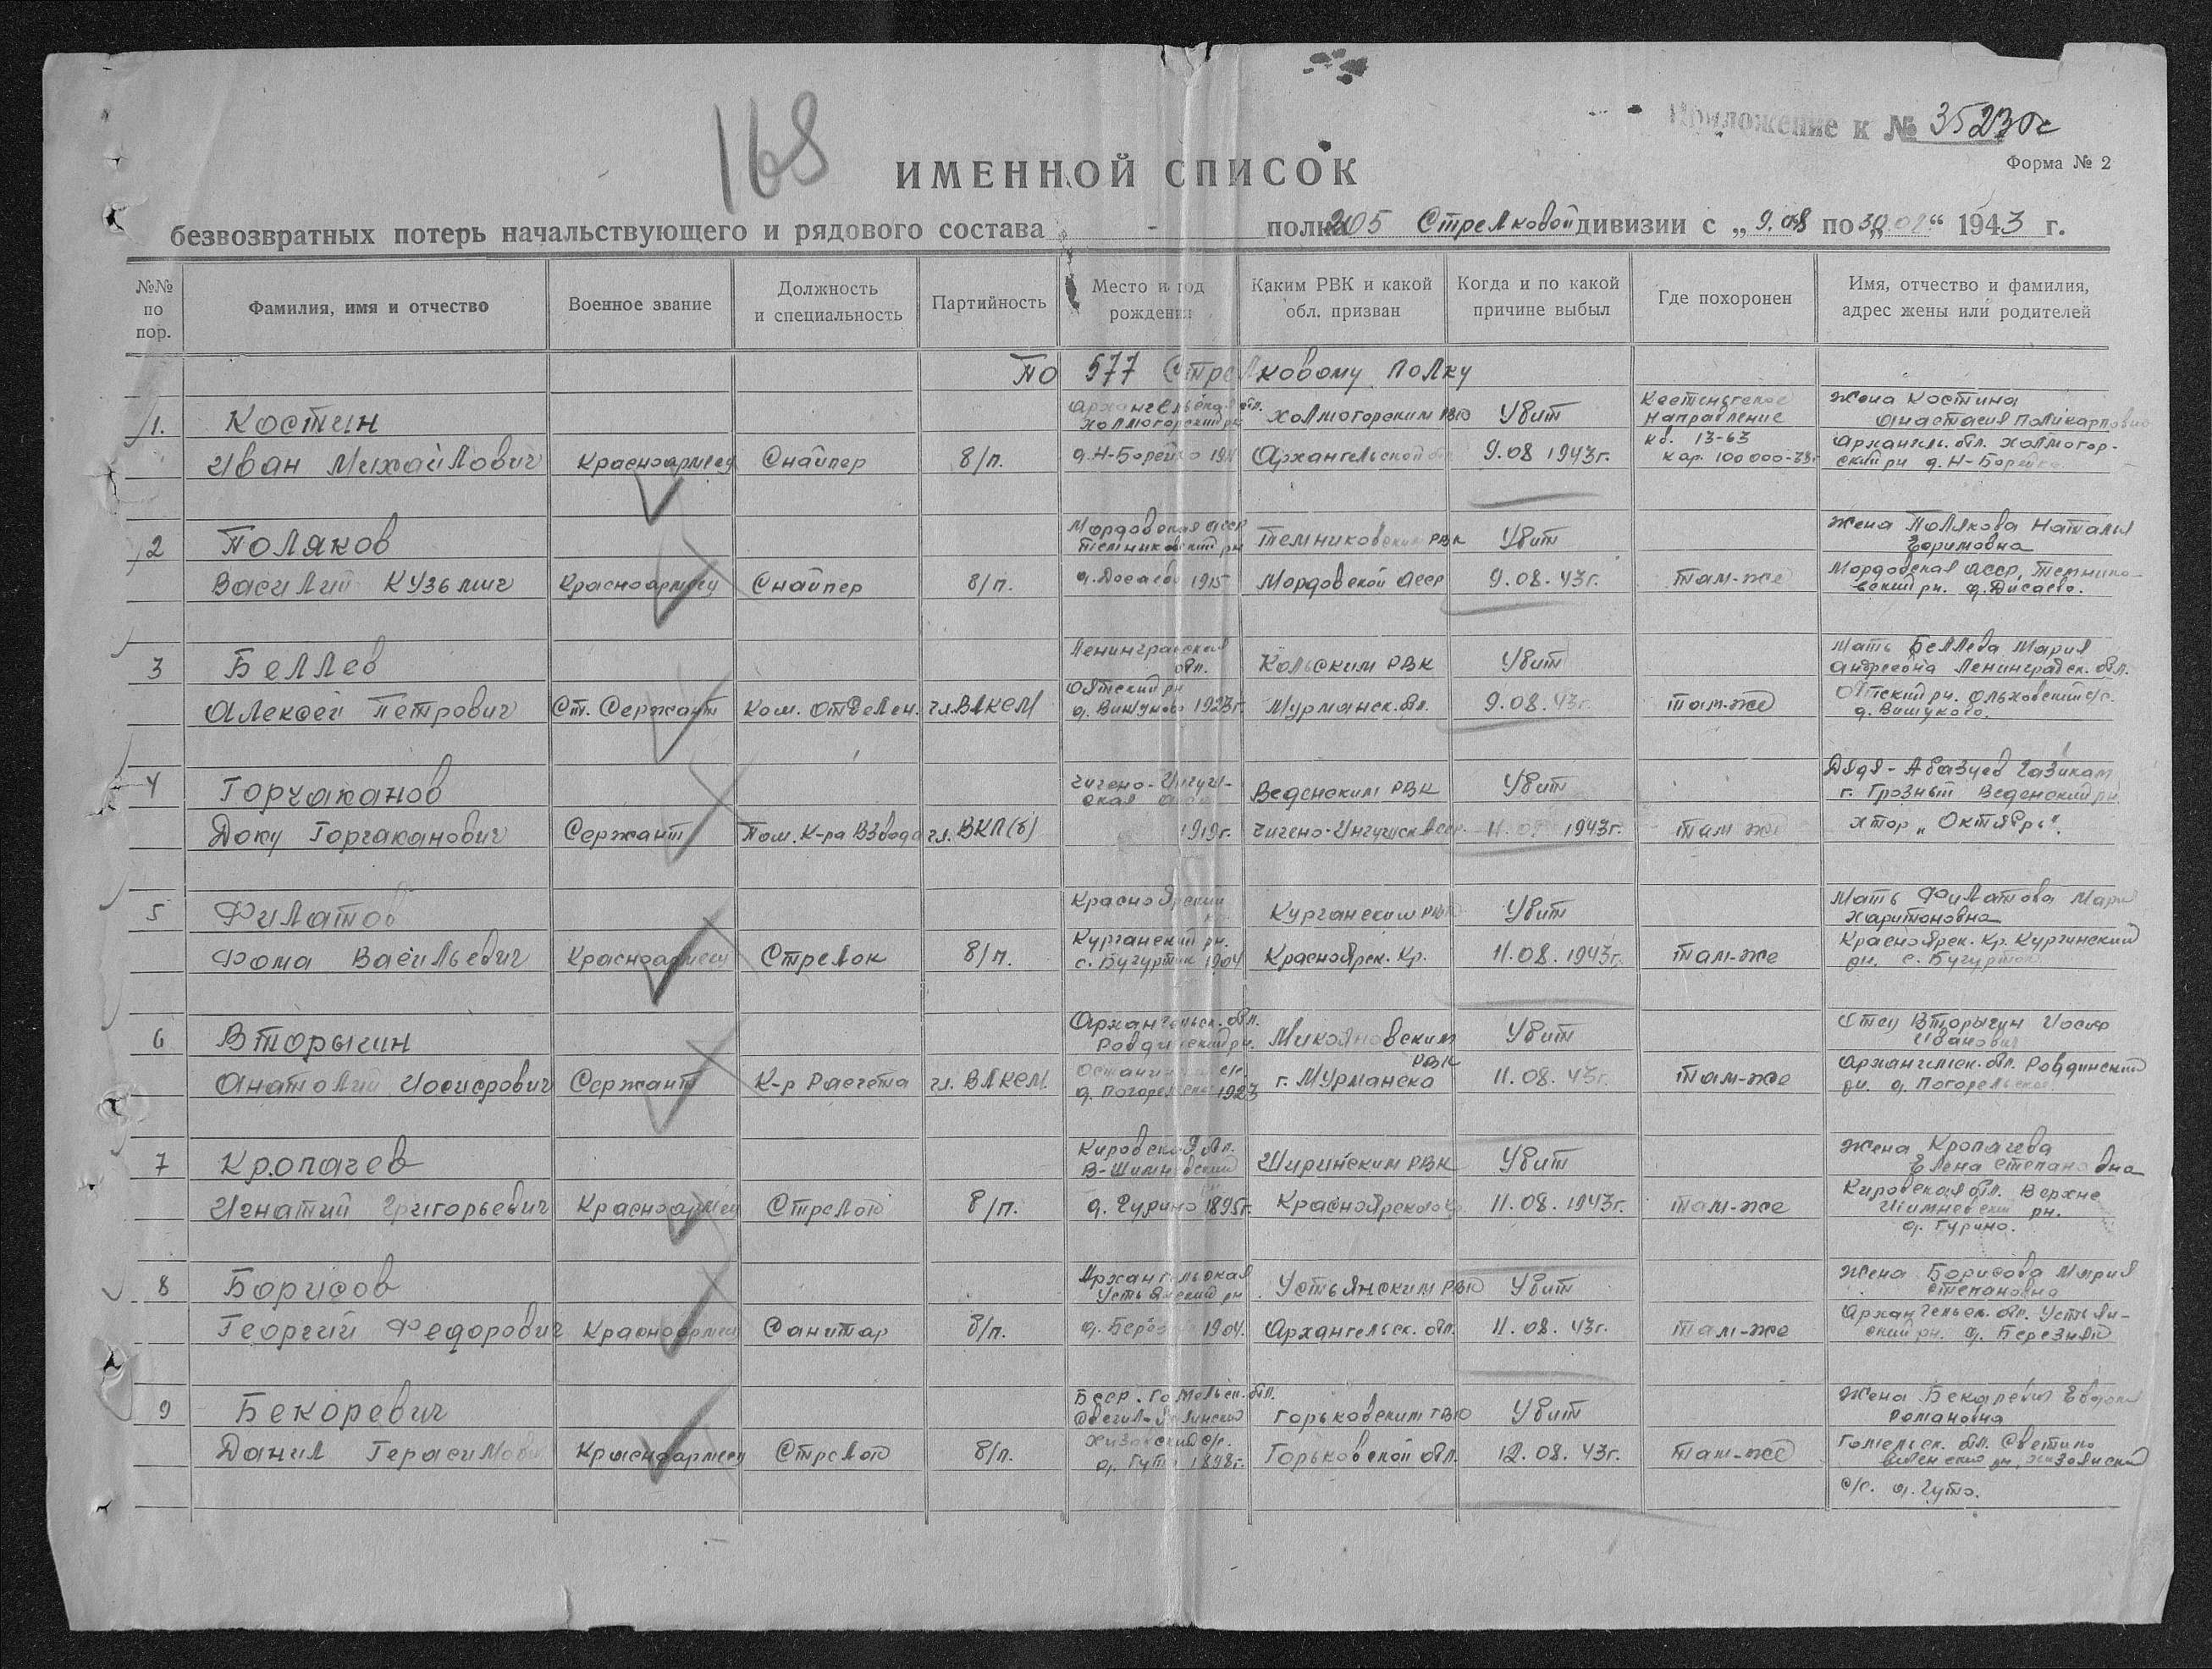 168
Приложение к № 35230с
Форма № 2
ИМЕННОЙ СПИСОК
безвозвратных потерь начальствующего и рядового состава - полка 205 Стрелковой дивизии с „9.08 по 30.08“ 1943 г.
№№ по пор.
Фамилия, имя и отчество
Военное звание
Должность и специальность
Партийность
Место и год рождения
Каким РВК и какой обл. призван
Когда и по какой причине выбыл
Где похоронен
Имя, отчество и фамилия, адрес жены или родителей
По 577 Стрелковому полку
1. Костин Архангельская обл. Холмогорский рн Холмогорским РВК Убит направление Жена Костина Анастасия Поликарповна
Иван Михайлович Красноармеец Снайпер б/п. д. Н-Борейко Архангельской 9.08 1943г. кв. 13-63 кар. 100000-38г Архангель. обл. Холмогорский рн д. Н-Борейко
2 Поляков Мордовская АССР Темниковский рн Темниковским РВК Убит Жена Полякова Наталья
Василий Кузьмич Красноармеец Снайпер б/п. 1915 Мордовской АССР 9.08.43г. Там-же Мордовская АССР, Темниковский рн.
3 Беляев Ленинградская обл. Кольским РВК Убит Мать Беляева Мария Андреевна Ленинградск. обл.
Алексей Петрович Ст. Сержант Ком. Отделен. чл. ВЛКСМ Оятский рн 1923г. Мурманск. обл. 9.08.43г. там-же Оятский рн. Ольховский с/с.
4 Горчаханов Чечено-Ингушская Веденским РВК Убит Дядя - Абазуев
Доку Горчаканович Сержант Пом. К-ра Взвода чл. ВКП(б) 1919г. Чечено-Ингушск АССР 1943г. там же г. Грозный Веденский рн хтор „Октябрь“.
5 Филатов Красноярский Курганским РВК Убит Мать Филатова Мария Харитоновна
Фома Васильевич Красноармеец Стрелок б/п. Курганский рн. 1904 Красноярск. Кр. 11.08.1943г. Там-же Красноярск. Кр. Курганский рн.
6 Вторыгин Архангельск. обл. Ровдинский рн. Микояновским РВК Убит Отец Вторыгин Иосиф Иванович
Анатолий Иосифович Сержант К-р Расчета чл. ВЛКСМ 1923 г. Мурманска 11.08.43г. Там-же Архангельск. обл. Ровдинский рн.
7 Кропачев Кировская обл. Ширинским РВК Убит Жена Кропачева Елена Степановна
Игнатий Григорьевич Красноармеец Стрелок б/п. д. Гурино 1895г. Красноярского 11.08.1943г. там-же Кировская обл. Верхне рн. д. Гурино.
8 Борисов Архангельская Устьянский рн Устьянским РВК Убит Жена Борисова Мария Степановна
Георгий Федорович Красноармеец Санитар б/п. 1904. Архангельск. обл. 11.08.43г. там-же Архангельск. обл. Устьянский рн. д. Березник
9 Бекоревич БССР. Гомельск. обл. Горьковским ГВК Убит Жена Бекаревич Романовна
Данил Герасимович Красноармеец Стрелок б/п. д. Гута 1898г. Горьковской обл. 12.08.43г. там-же Гомельск. обл.
с/с. д. Гута.